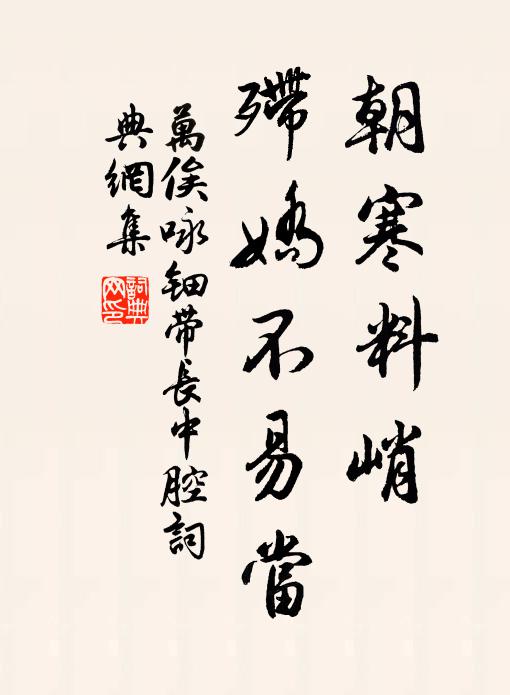 朝寒料峭
殢嬌不易當
萬俟咏鈿帶長中腔詞
典網集
詞典網印